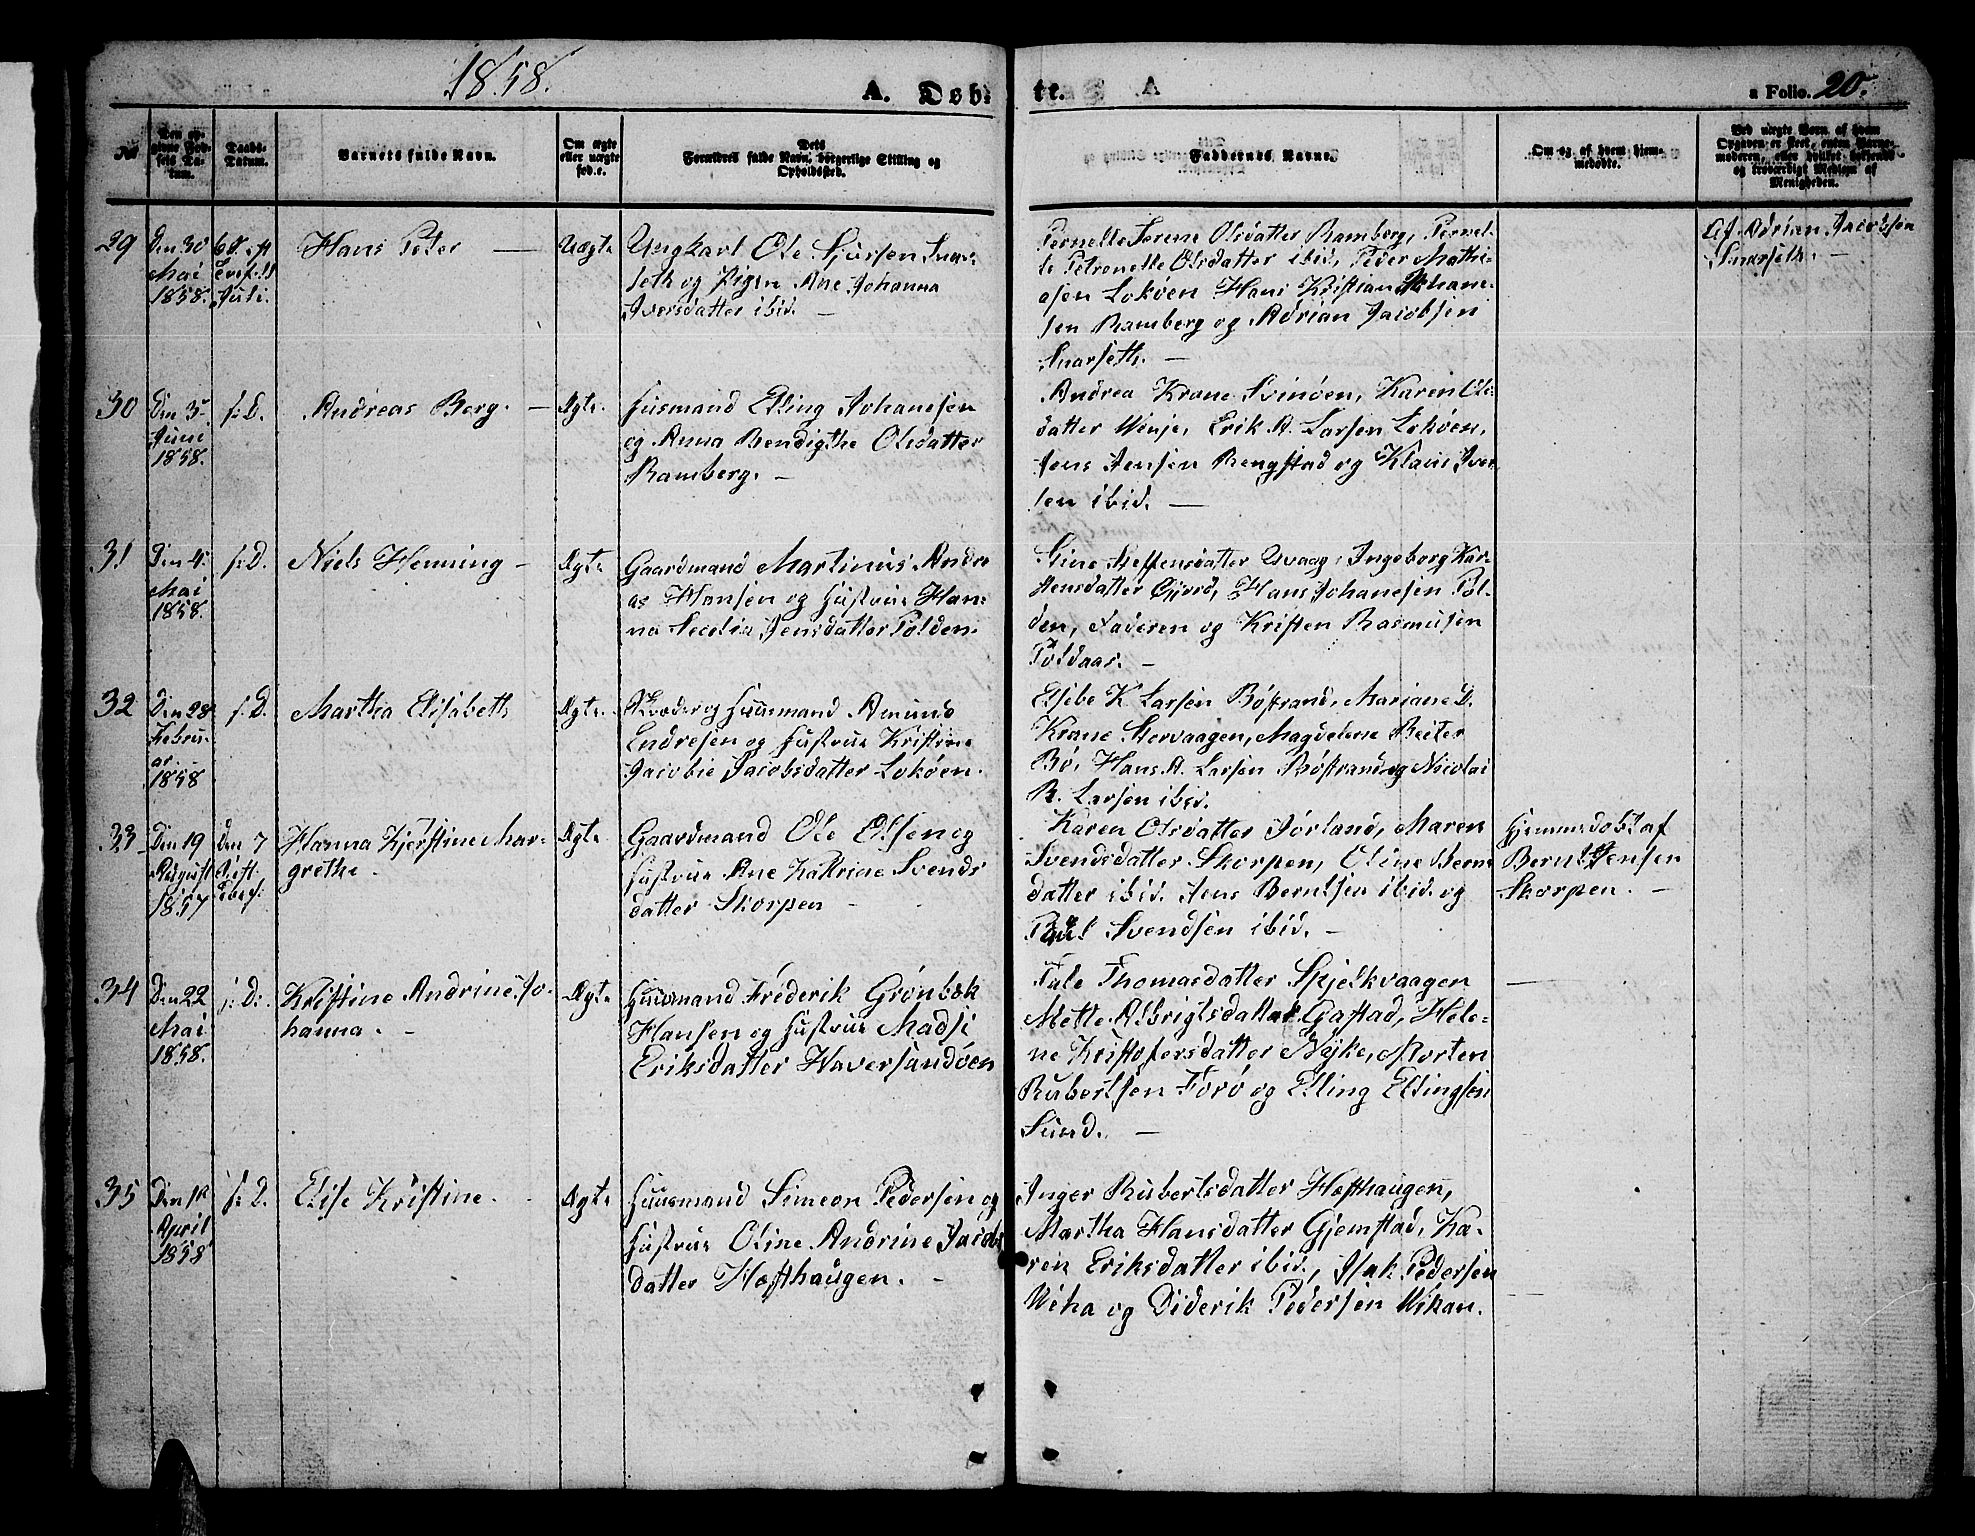 1858.
A. Døbte.
a Folio. 20.
No.
Den opgivne Fødsels Datum.
Daabs-Datum.
Barnets fulde Navn.
Om ægte eller uægte fød.e.
Dets Forældres fulde Navn, borgerlige Stilling og Opholdssted.
Faddernes Navne.
Om og af hvem hjemmedøbte.
Ved uægte Børn af hvem Opgaven er skeet, enten Barnemoderen, eller hvilket bekjendt og troværdigt Medlem af Menigheden.
29
Den 30
Mai
1858.
6 S. eft
Tref. 11
Juli.
Hans Peter
Uægt.
Ungkarl Ole Sjursen Snar-
seth og Pigen Ane Johanna
Iversdatter ibid. –
Pernelle Serene Olsdatter Ramberg, Pernel-
le Petronelle Olsdatter ibid, Peder Mathi-
asen Lokøen Hans Kristian Johane-
sen Ramberg og Adrian Jacobsen
Snarseth. –
Af Adrian Jacobsen
Snarseth. –
30
Den 3
Juni
1858.
s: D.
Andreas Berg. –
Ægte.
Husmand Elling Johanesen
og Anna Bendigthe Olsdatter
Ramberg. –
Andrea Krane Svinøen, Karen Ols-
datter Vinje, Erik A. Larsen Lokøen,
Jens Jensen Rengstad og Klaus Iver
sen ibid. –
31
Den 4
Mai
1858.
s: D.
Niels Henning –
Ægte
Gaardmand Martinus Andre
as Hansen og Hustrue Han-
na Secelia Jensdatter Tolden.
Stine Steffensdatter Qvaag, Ingeborg Kar-
stensdatter Gjerø, Hans Johanesen Tol-
den, Faderen og Kristen Rasmusen
Toldaas. –
32
Den 28
Febru-
ar.
1858
s: D.
Martha Elisabeth
Ægte.
Skræder og Huusmand Amund
Endresen og Hustrue Kristine
Jacobie Jacobsdatter Lokøen.
Elsebe K. Larsen Bøstrand, Mariane D.
Krane Storvaagen, Magdelene Reiter
Bø, Hans A. Larsen Bøstrand og Nicolai
R. Larsen ibid.
33
Den 19
August
1857
Den 7
S. eft
Hanna Kjerstine Mar-
grethe.
Ægte
Gaardmand Ole Olsen og
Hustrue Ane Katrine Svends
datter Skorpen –
Karen Olsdatter Jørland, Maren
Svendsdatter Skorpen, Oline Bernt
datter ibid. Jens Berntsen ibid. og
Paul Svendsen ibid. –
Hjemmedøbt af
Bernt Jensen
Skorpen. –
34
Den 22
Mai
1858.
s: D:
Kristine Andrine Jo-
hanna. –
Ægte
Huusmand Fréderik Grønbæk
Hansen og Hustrue Madsi
Eriksdatter Haversandøen
Tale Thomasdatter Skjelkvaagen
Mette Albrigtsdatter Gåstad, Hele-
ne Kristofersdatter Nyke, Morten
Rubertsen Forø og Elling Ellingsen
Sund. –
35
Den 1
April
1858
s: D.
Elise Kristine.
Ægte
Huusmand Simeon Pedersen og
Hustrue Oline Andrine Jacobs
datter Hæfthaugen. –
Inger Rubertsdatter Hæfthaugen,
Martha Hansdatter Gjemstad, Ka-
ren Eriksdatter ibid, Isak Pedersen
Viha og Diderik Pedersen Vikan.